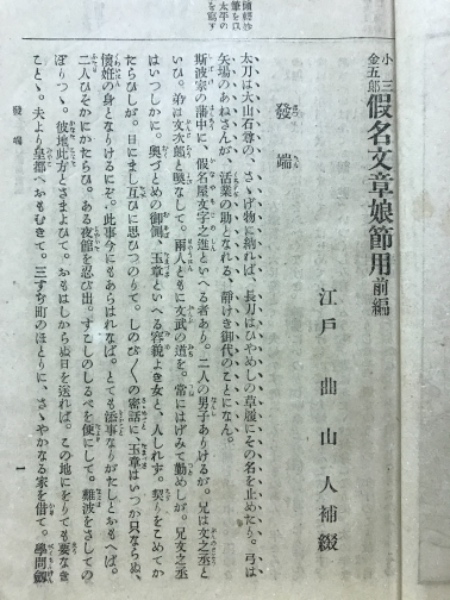 小三
金五郎
假名文章娘節用 前編
江戸 曲山人補綴
發端
太刀は大山石尊の、さゝげ物に納れば、長刀はひやめしの草履にその名を止めたり。弓は
矢場のあねさんが、活業の助となれる、靜けき御代のことになん。
斯波家の藩中に、假名屋文字之進といへる者あり。二人の男子ありけるが。兄は文之丞と
いひ。弟は文次郎と喚なして。兩人ともに文武の道を。常にはげみて勤めしが。兄文之丞
はいつしかに。奥づとめの御側、玉章といへる容義よき女と、人しれず。契りをこめてか
たらひしが。日にまし互ひに思ひつのりて。しのび〳〵の密話に、玉章はいつか只ならぬ、
懷姙の身となりけるにぞ。此事今にもあらはれなば。とても活事なりがたしとおもへば。
二人ひそかにかたらひ。ある夜館を忍び出。すこしのしるべを便にして。難波をさしての
ぼりつゝ。彼地此方とさまよひて。おもはしからぬ日を送れば。この地にをりても要なき
ことゝ。夫より皇都へおもむきて。三すぢ町のほとりに、さゝやかなる家を借て。學問劔
發端
一